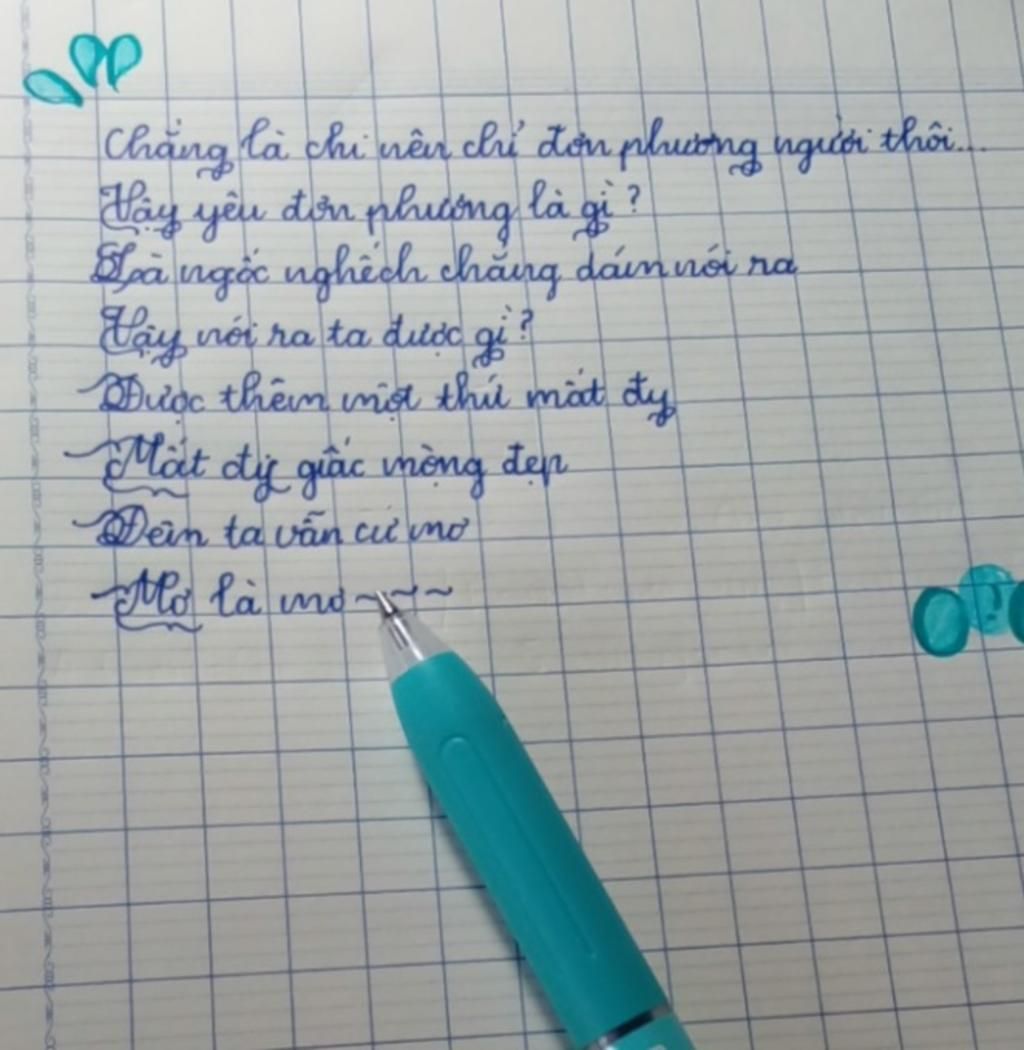 Chẳng là chi nên chỉ đơn phương người thôi...
Vậy yêu đơn phương là gì?
Là ngốc nghếch chẳng dám nói ra
Vậy nói ra ta được gì?
Được thêm một thứ mất đy
Mất đy giấc mộng đẹp
Đêm ta vẫn cứ mơ
Mơ là mơ ~~~